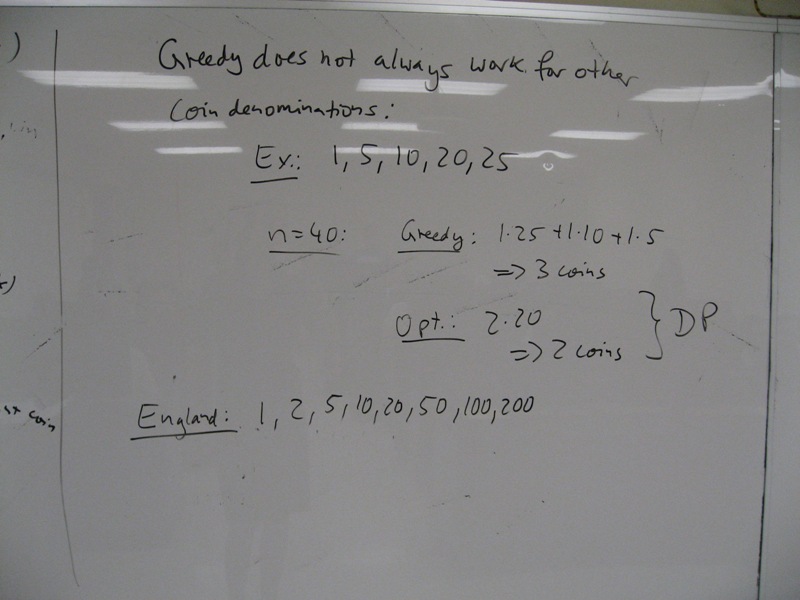 Greedy does not always work for other
coin denominations:
Ex.: 1, 5, 10, 20, 25
n=40: Greedy: 1·25 +1·10 +1·5
=> 3 coins
Opt.: 2·20 } DP
=> 2 coins
England: 1, 2, 5, 10, 20, 50, 100, 200
coin